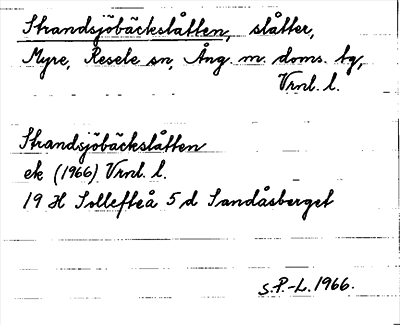 Strandsjöbäckslåtten, slåtter,
Myre, Resele sn, Ång. m. doms. tg,
Vrnl. l.
Strandsjöbäckslåtten
ek (1966) Vrnl. l.
19 H Sollefteå 5 d Sandåsberget
S.P.-L. 1966.